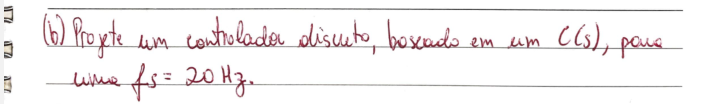 (b) Projete um controlador discreto, baseado em um C(s), para
uma fs = 20 Hz.